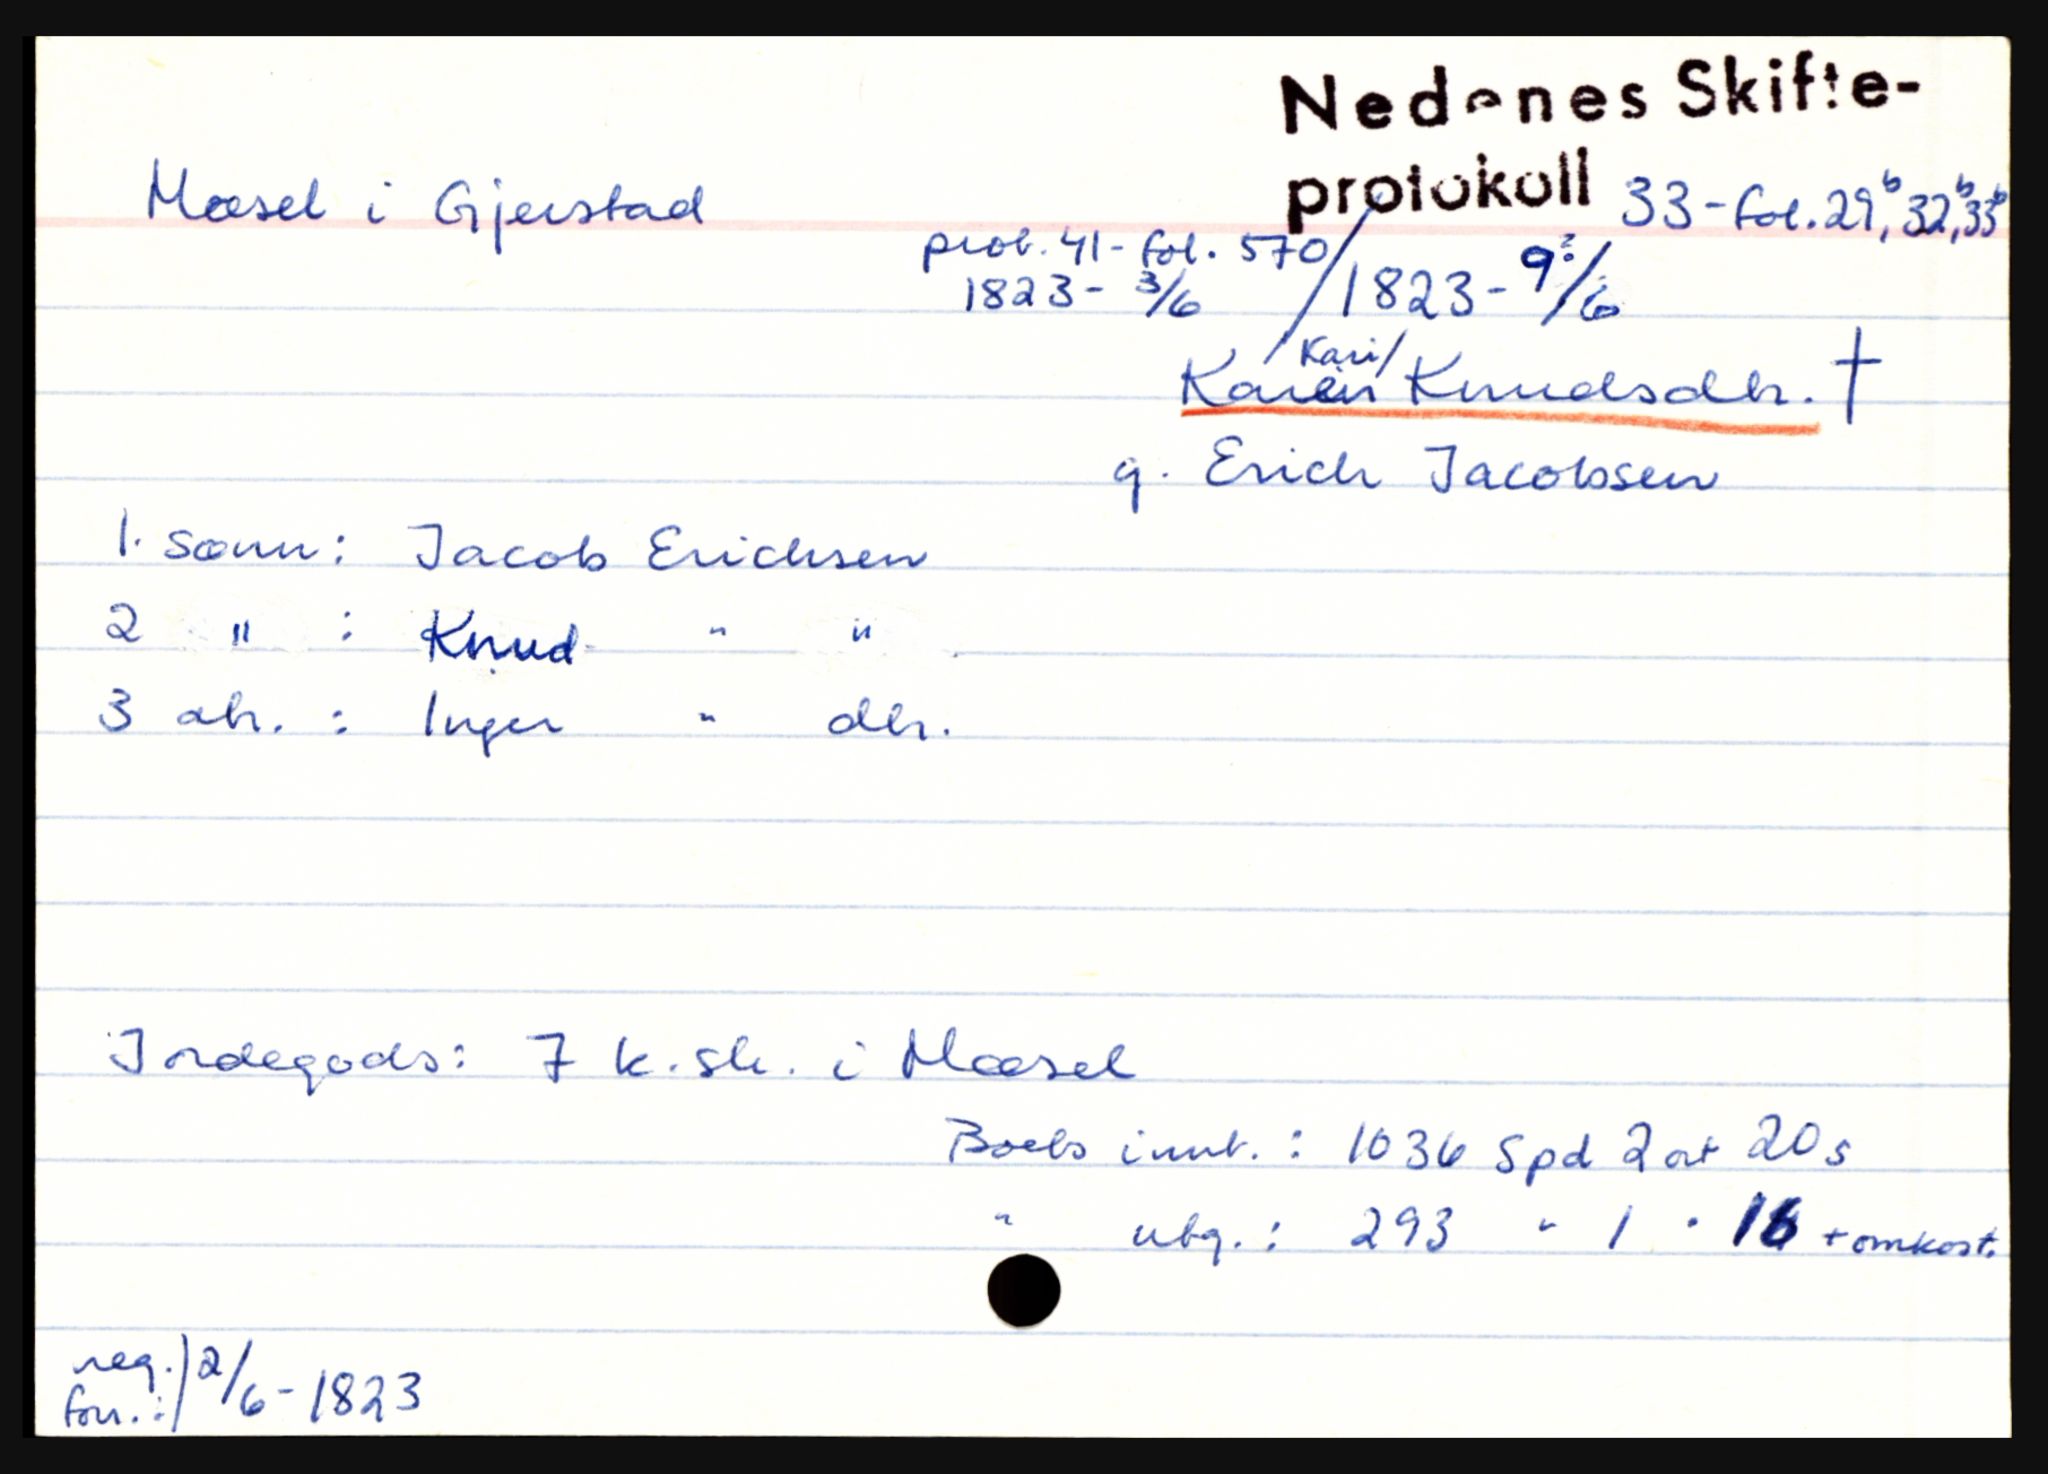 Nedenes Skifte-
protokoll 33-fol. 29b, 32b, 33b
Mæsel i Gjerstad
prot. 41- fol. 570 / 1823- 9?/6
1823- 3/6
/Kari/
Karen Knudsdtr. †
g. Erich Jacobsen
1. sønn: Jacob Erichsen
2 " : Knud " "
3 dtr. : Inger " dtr.
Jordegods: 7 k.sk. i Mæsel
Boets innt. : 1036 Spd 2 ort 20 s
" utg. : 293 " 1 " 16 + omkost.
reg.
forr. : / 2/6-1823